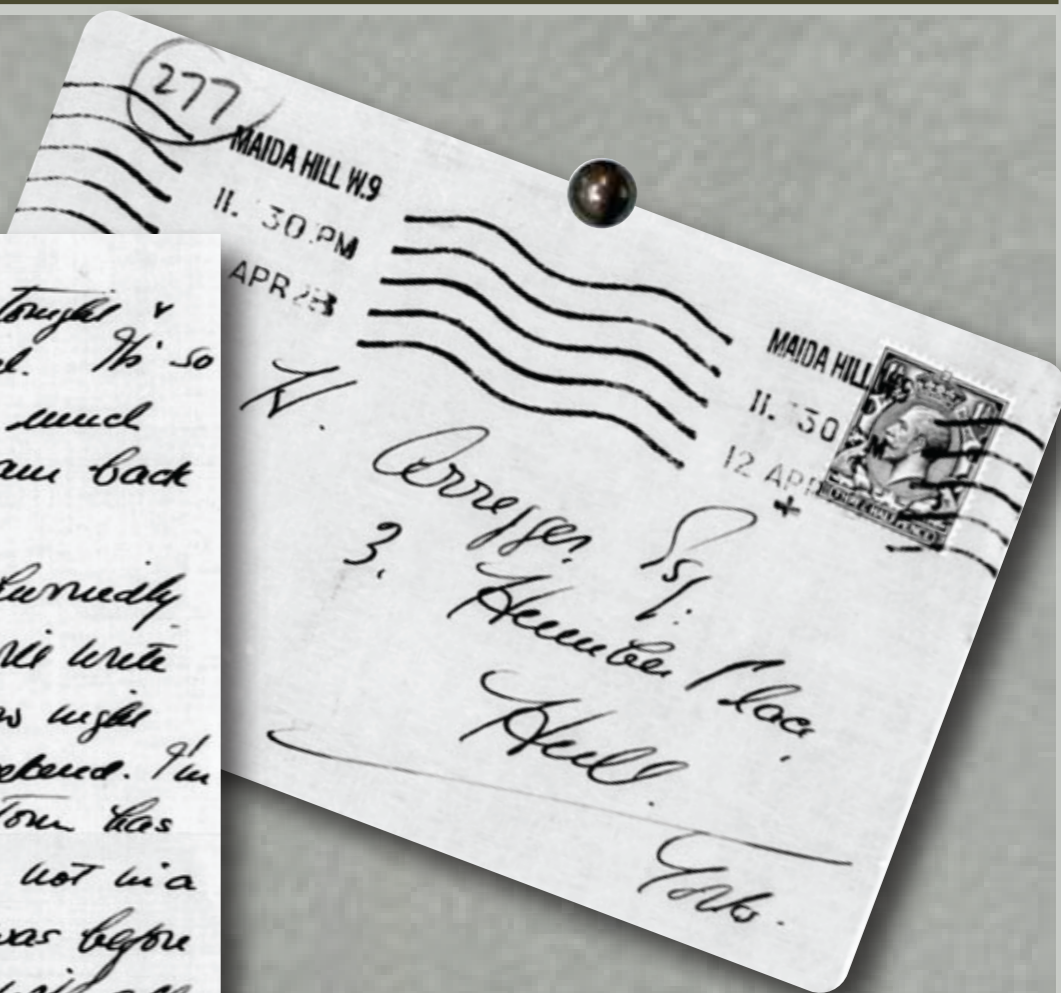 277
MAIDA HILL W.9
11. 30 PM
APR
MAIDA HILL W9
11. 30 M
12 APR
H.
Arregger Esq.
3. Humber Place
Hull.
Yorks.
Tonight &
It's so
much
am back
hurriedly
write
night
I'm
Tom has
not in a
was before